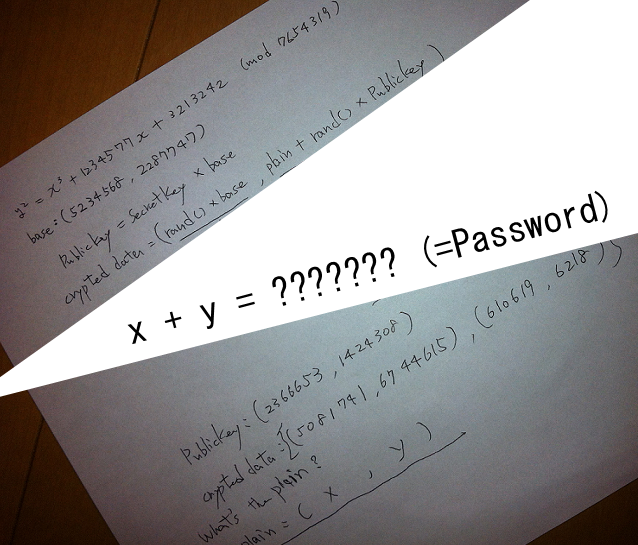 y² = x³ + 1234577x + 3213242 (mod 7654319)
base: (5234568, 2287747)
PublicKey = SecretKey × base
crypted data = (rand() × base, plain + rand() × PublicKey)
x + y = ??????? (=Password)
PublicKey: (2366653, 1424308)
crypted data: {(5081741, 6744615), (610619, 6218)}
What's the plain?
plain = ( x , y )